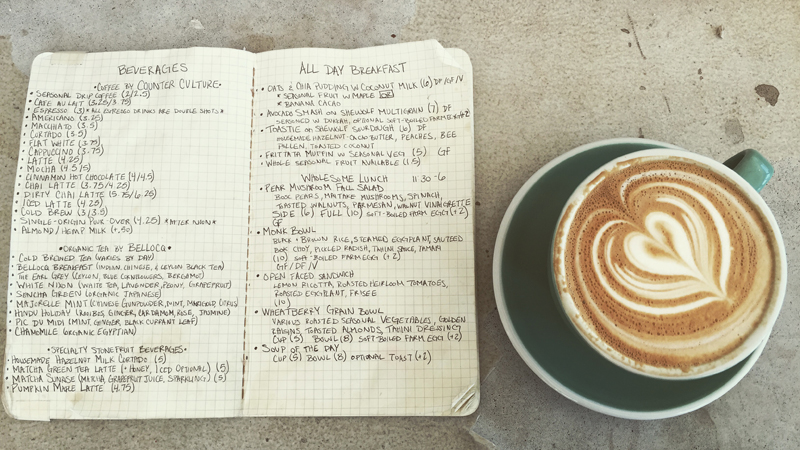 BEVERAGES
• COFFEE BY COUNTER CULTURE •
• SEASONAL DRIP COFFEE (2/2.5)
• CAFE AU LAIT (3.25/3.75)
• ESPRESSO (3) * ALL ESPRESSO DRINKS ARE DOUBLE SHOTS *
• AMERICANO (3.25)
• MACCHIATO (3.5)
• CORTADO (3.5)
• FLAT WHITE (3.75)
• CAPPUCCINO (3.75)
• LATTE (4.25)
• MOCHA (4.5/5)
• CINNAMON HOT CHOCOLATE (4/4.5)
• CHAI LATTE (3.75/4.25)
• DIRTY CHAI LATTE (5.75/6.25)
• ICED LATTE (4.25)
• COLD BREW (3/3.5)
• SINGLE-ORIGIN POUR OVER (4.25) * AFTER NOON *
• ALMOND/HEMP MILK (+.50)
• ORGANIC TEA BY BELLOCQ •
• COLD BREWED TEA (VARIES BY DAY)
• BELLOCQ BREAKFAST (INDIAN, CHINESE, & CEYLON BLACK TEA)
• THE EARL GREY (CEYLON, BLUE CORNFLOWERS, BERGAMOT)
• WHITE NIXON (WHITE TEA, LAVENDER, PEONY, GRAPEFRUIT)
• SENCHA GREEN (ORGANIC JAPANESE)
• MAJORELLE MINT (CHINESE GUNPOWDER, MINT, MARIGOLD, CITRUS)
• HINDU HOLIDAY (ROOIBOS, GINGER, CARDAMOM, ROSE, JASMINE)
• PIC DU MIDI (MINT, GINGER, BLACK CURRANT LEAF)
• CHAMOMILE (ORGANIC EGYPTIAN)
• SPECIALTY STONEFRUIT BEVERAGES •
• HOUSEMADE HAZELNUT MILK CORTADO (5)
• MATCHA GREEN TEA LATTE (+ HONEY, ICED OPTIONAL) (5)
• MATCHA SUNRISE (MATCHA, GRAPEFRUIT JUICE, SPARKLING) (5)
• PUMPKIN MAPLE LATTE (4.75)
ALL DAY BREAKFAST
• OATS & CHIA PUDDING W COCONUT MILK (6) DF/GF/V
* SEASONAL FRUIT W MAPLE OR
* BANANA CACAO
• AVOCADO SMASH ON SHEWOLF MULTIGRAIN (7) DF
SEASONED W DUKKAH, OPTIONAL SOFT-BOILED FARM EGG (+2)
• TOASTIE ON SHEWOLF SOURDOUGH (6) DF
HOUSEMADE HAZELNUT-CACAO BUTTER, PEACHES, BEE
POLLEN, TOASTED COCONUT
• FRITTATA MUFFIN W SEASONAL VEG (5) GF
• WHOLE SEASONAL FRUIT AVAILABLE (1.5)
WHOLESOME LUNCH 11:30-6
• PEAR MUSHROOM FALL SALAD
BOSC PEARS, MAITAKE MUSHROOMS, SPINACH,
TOASTED WALNUTS, PARMESAN, WALNUT VINAIGRETTE
SIDE (6) FULL (10) SOFT-BOILED FARM EGG (+2)
GF
• MONK BOWL
BLACK + BROWN RICE, STEAMED EGGPLANT, SAUTEED
BOK CHOY, PICKLED RADISH, TAHINI SAUCE, TAMARI
(10) SOFT-BOILED FARM EGG (+2)
GF/DF/V
• OPEN FACED SANDWICH
LEMON RICOTTA, ROASTED HEIRLOOM TOMATOES,
ROASTED EGGPLANT, FRISEE
(10)
• WHEATBERRY GRAIN BOWL
VARIOUS ROASTED SEASONAL VEGETABLES, GOLDEN
RAISINS, TOASTED ALMONDS, TAHINI DRESSING
CUP (5) BOWL (8) SOFT-BOILED FARM EGG (+2)
• SOUP OF THE DAY
CUP (5) BOWL (8) OPTIONAL TOAST (+2)